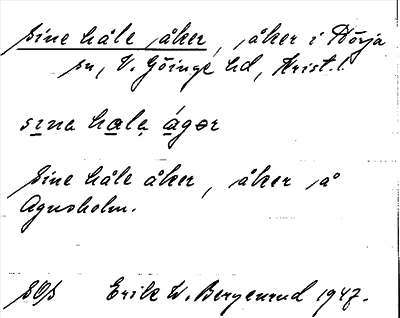 Sine håle åker, åker i Nörja
sn, V. Göinge hd, Krist.l.
sina hala ágər
Sine håle åker, åker på
Agusholm.
SOS Erik W. Bergenrud 1947.